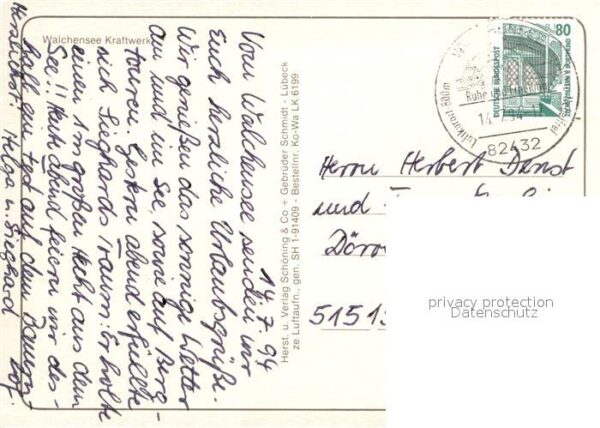 Walchensee Kraftwerk
14.7.94
Vom Walchensee senden wir
Euch herzliche Urlaubsgrüße.
Wir genießen das sonnige Wetter
am und im See, sowie auf Berg-
touren. Gestern abend erfüllte
sich Sieghards Traum: Er holte
einen 1 m großen Hecht aus dem
See!! Heute Abend feiern wir des-
halb ein Fest auf dem Bauern-
hof.
Herzlichst Helga u. Sieghard
Herst. u. Verlag Schöning & Co + Gebrüder Schmidt - Lübeck
ze Luftaufn., gen. SH 1-91409 - Bestellnr. Ko-Wa LK 6199
80
DEUTSCHE BUNDESPOST
Luftkurort 800m
82432
Herrn Herbert Denst
und
5151
privacy protection
Datenschutz